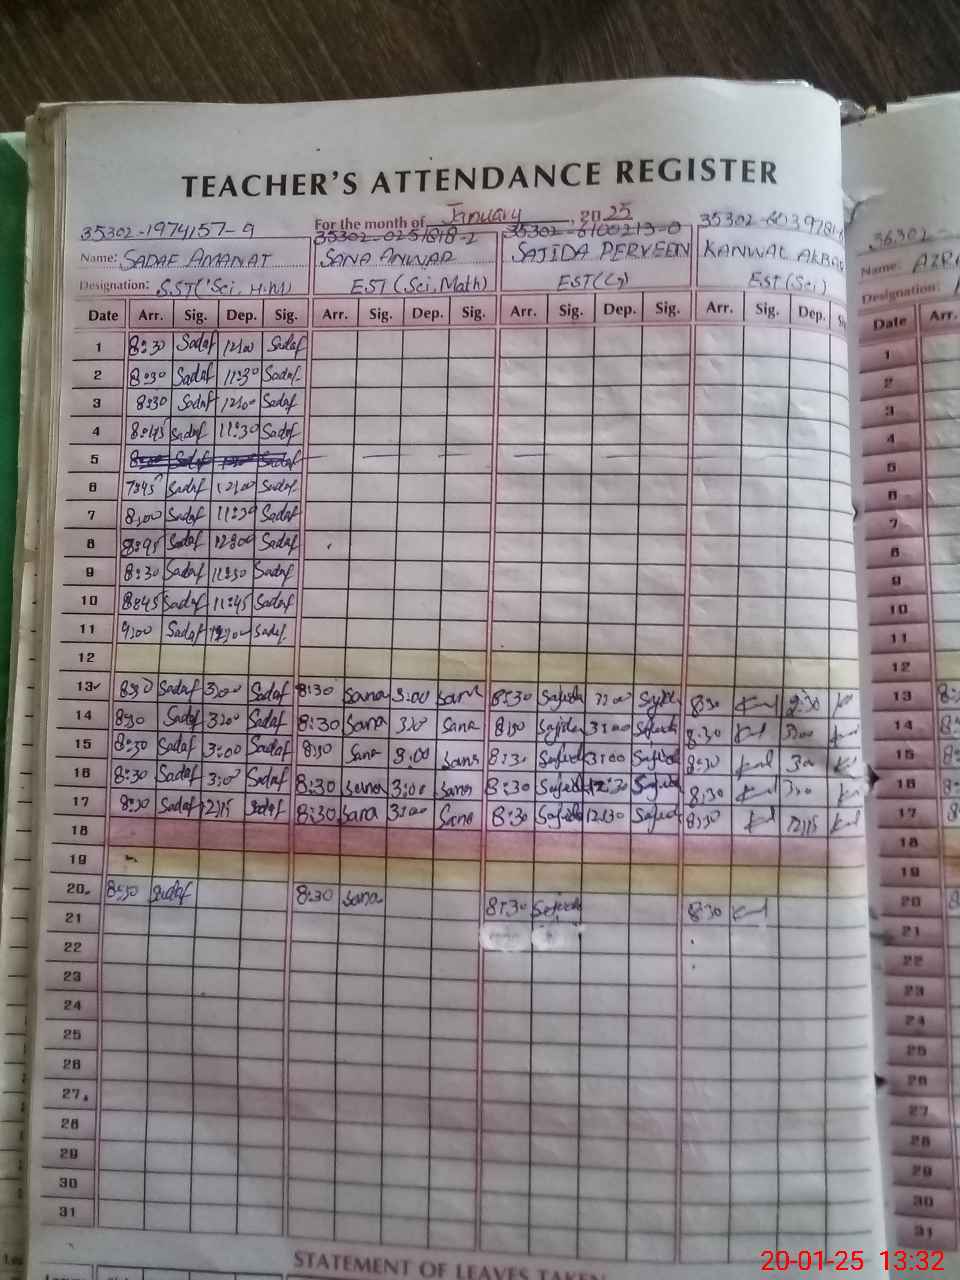 TEACHER'S ATTENDANCE REGISTER
For the month of January, 2025
35302-1974157-9 35302-0251818-2 35302-6100213-0
Name: SADAF AMANAT SANA ANWAR SAJIDA PERVEEN KANWAL AKBAR
Designation: SST(Sci, H.M) EST (Sci, Math) EST(G) EST(Sci)
Date Arr. Sig. Dep. Sig. Arr. Sig. Dep. Sig. Arr. Sig. Dep. Sig. Arr. Sig. Dep.
1 8:30 Sadaf 12:00 Sadaf
2 8:30 Sadaf 11:30 Sadaf
3 8:30 Sadaf 12:00 Sadaf
4 8:45 Sadaf 11:30 Sadaf
5
6 7:45 Sadaf 12:00 Sadaf
7 8:00 Sadaf 11:30 Sadaf
8 Sadaf 12:00 Sadaf
9 8:30 Sadaf 11:30 Sadaf
10 8:45 Sadaf 11:45 Sadaf
11 9:00 Sadaf 12:00 Sadaf
12
13 8:30 Sadaf 3:00 Sadaf 8:30 Sana 3:00 Sana 8:30 Sajida 3:00 Sajida 8:30 2:30
14 8:30 Sadaf 3:00 Sadaf 8:30 Sana 3:00 Sana 8:30 Sajida 3:00 Sajida 8:30 3:00
15 8:30 Sadaf 3:00 Sadaf 8:30 Sana 3:00 Sana 8:30 Sajida 3:00 Sajida 8:30 3:00
16 8:30 Sadaf 3:00 Sadaf 8:30 Sana 3:00 Sana 8:30 Sajida 12:30 Sajida 8:30 3:00
17 8:30 Sadaf 12:15 Sadaf 8:30 Sana 3:00 Sana 8:30 Sajida 12:30 Sajida 8:30 12:15
18
19
20 8:30 Sadaf 8:30 Sana 8:30 Sajida 8:30
21
22
23
24
25
26
27
28
29
30
31
STATEMENT OF LEAVES TAKEN
Name: 
Designation:
Date Arr.
1
2
3
4
5
6
7
8
9
10
11
12
13
14
15
16
17
18
19
20
21
22
23
24
25
26
27
28
29
30
31
20-01-25 13:32